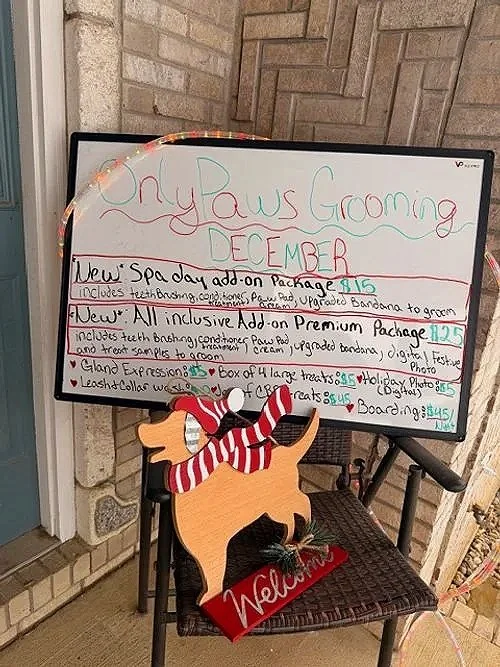 OnlyPaws Grooming
DECEMBER
*New* Spa day add-on Package $15
includes teeth Brushing, conditioner, Paw Pad treatment cream, upgraded Bandana to groom
*New*: All inclusive Add-on Premium Package $25
includes teeth Brushing, conditioner treatment, Paw Pad cream, upgraded bandana, digital festive Photo
and treat samples to groom
♥ Gland Expression: $5 ♥ Box of 4 large treats: $5 ♥ Holiday Photo: $5 (Digital)
♥ Leash + Collar of CBD treats: $45
♥ Boarding: $45/Night
Welcome